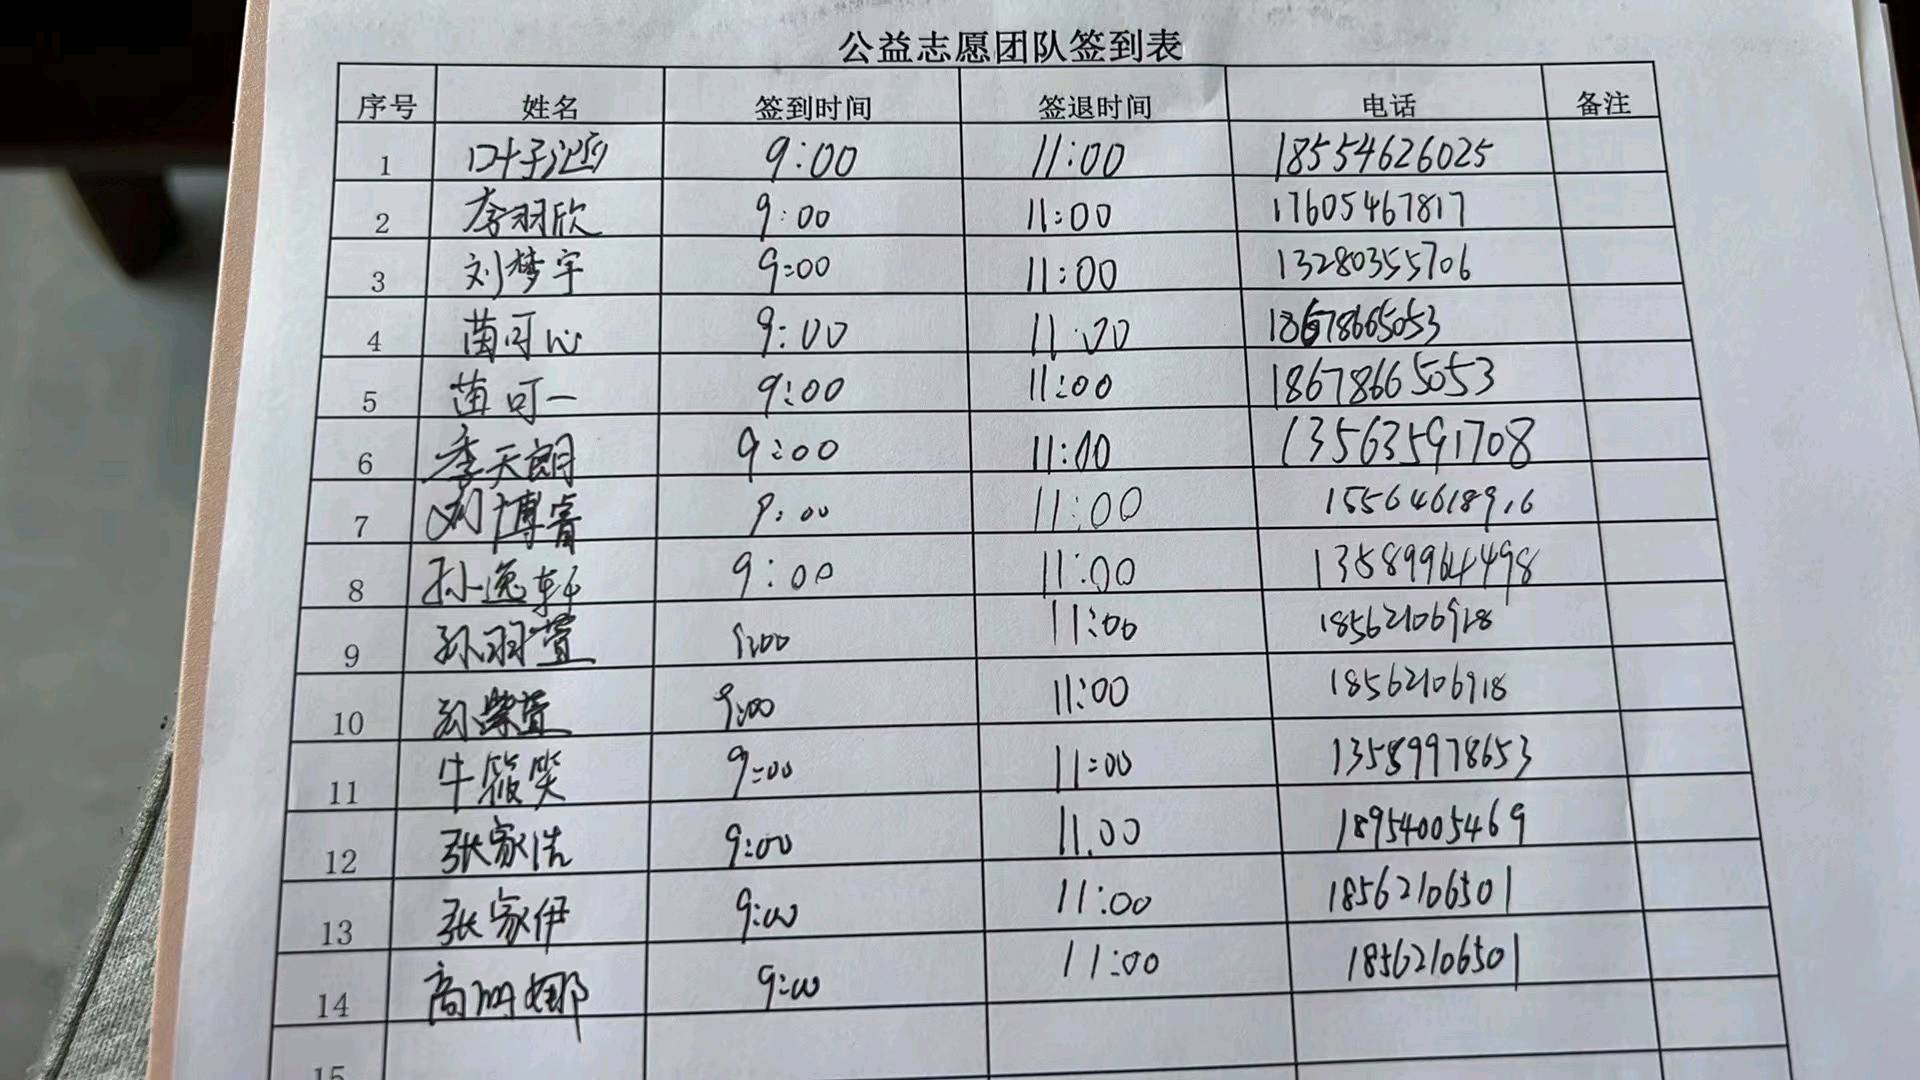 公益志愿团队签到表
序号 姓名 签到时间 签退时间 电话 备注
1 叶子涵 9:00 11:00 18554626025
2 李羽欣 9:00 11:00 17605467817
3 刘梦宇 9:00 11:00 13280355706
4 苗可心 9:00 11:00 18678665053
5 苗可一 9:00 11:00 18678665053
6 李天朗 9:00 11:00 13563591708
7 刘博睿 9:00 11:00 15564618916
8 孙逸轩 9:00 11:00 13589964498
9 孙羽萱 9:00 11:00 18562106918
10 孙紫萱 9:00 11:00 18562106918
11 牛筱笑 9:00 11:00 13589978653
12 张家浩 9:00 11.00 18954005469
13 张家伊 9:00 11:00 18562106501
14 高娜 9:00 11:00 18562106501
15